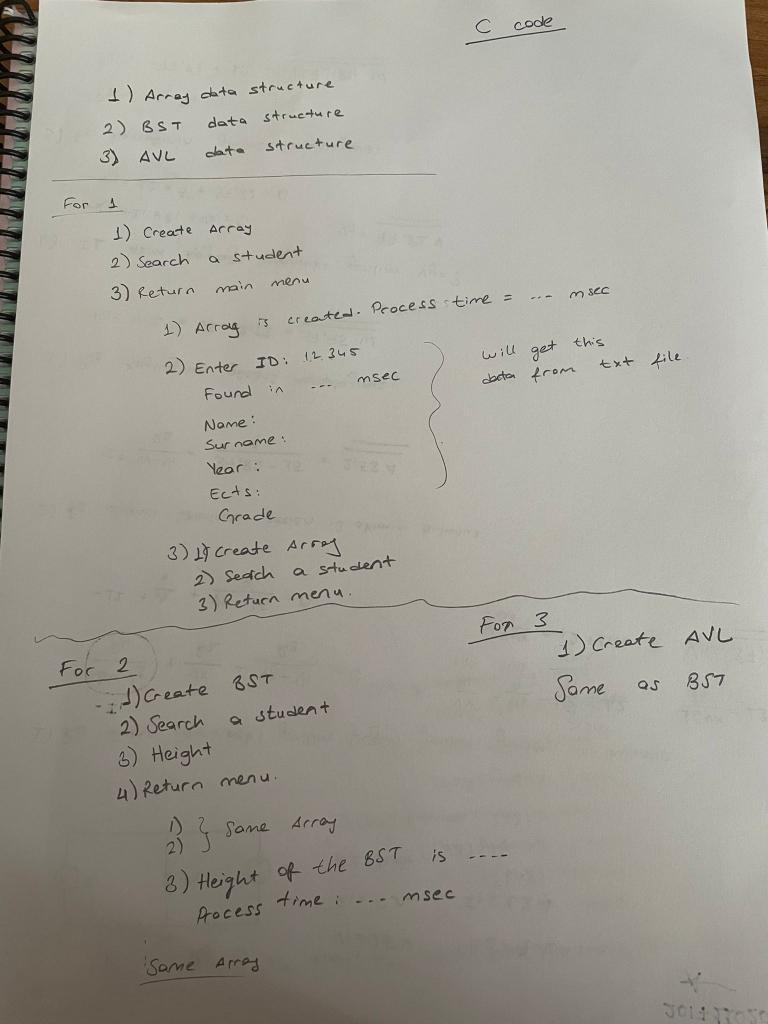 C code
1) Array data structure
2) BST data structure
3) AVL data structure
For 1
1) Create Array
2) Search a student
3) Return main menu
1) Array is created. Process time = --- msec
2) Enter ID: 12345
Found in --- msec
Name:
Surname:
Year:
Ects:
Grade
will get this
data from txt file
3) 1) Create Array
2) Search a student
3) Return menu.
For 2
1) Create BST
2) Search a student
3) Height
4) Return menu.
1)
2) } Same Array
3) Height of the BST is ----
Process time: --- msec
Same Array
For 3
1) Create AVL
Same as BST